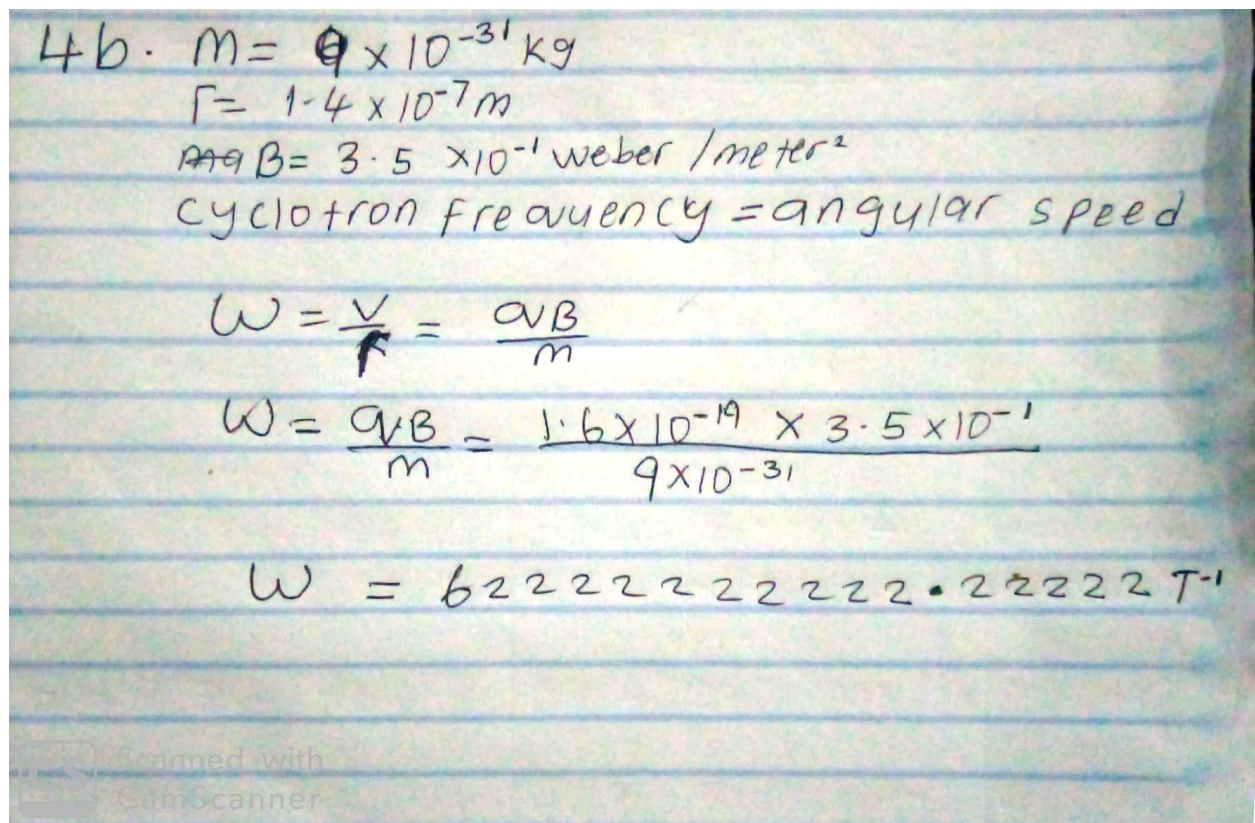 4b. M = 9 x 10-³¹ kg
r = 1.4 x 10-⁷ m
B = 3.5 x10-¹ weber /meter²
cyclotron frequency = angular speed
W = V/r = qB/m
W = qB/m = 1.6x10-¹⁹ x 3.5x10-¹ / 9x10-³¹
W = 62222222222.22222 T-¹
Scanned with
CamScanner